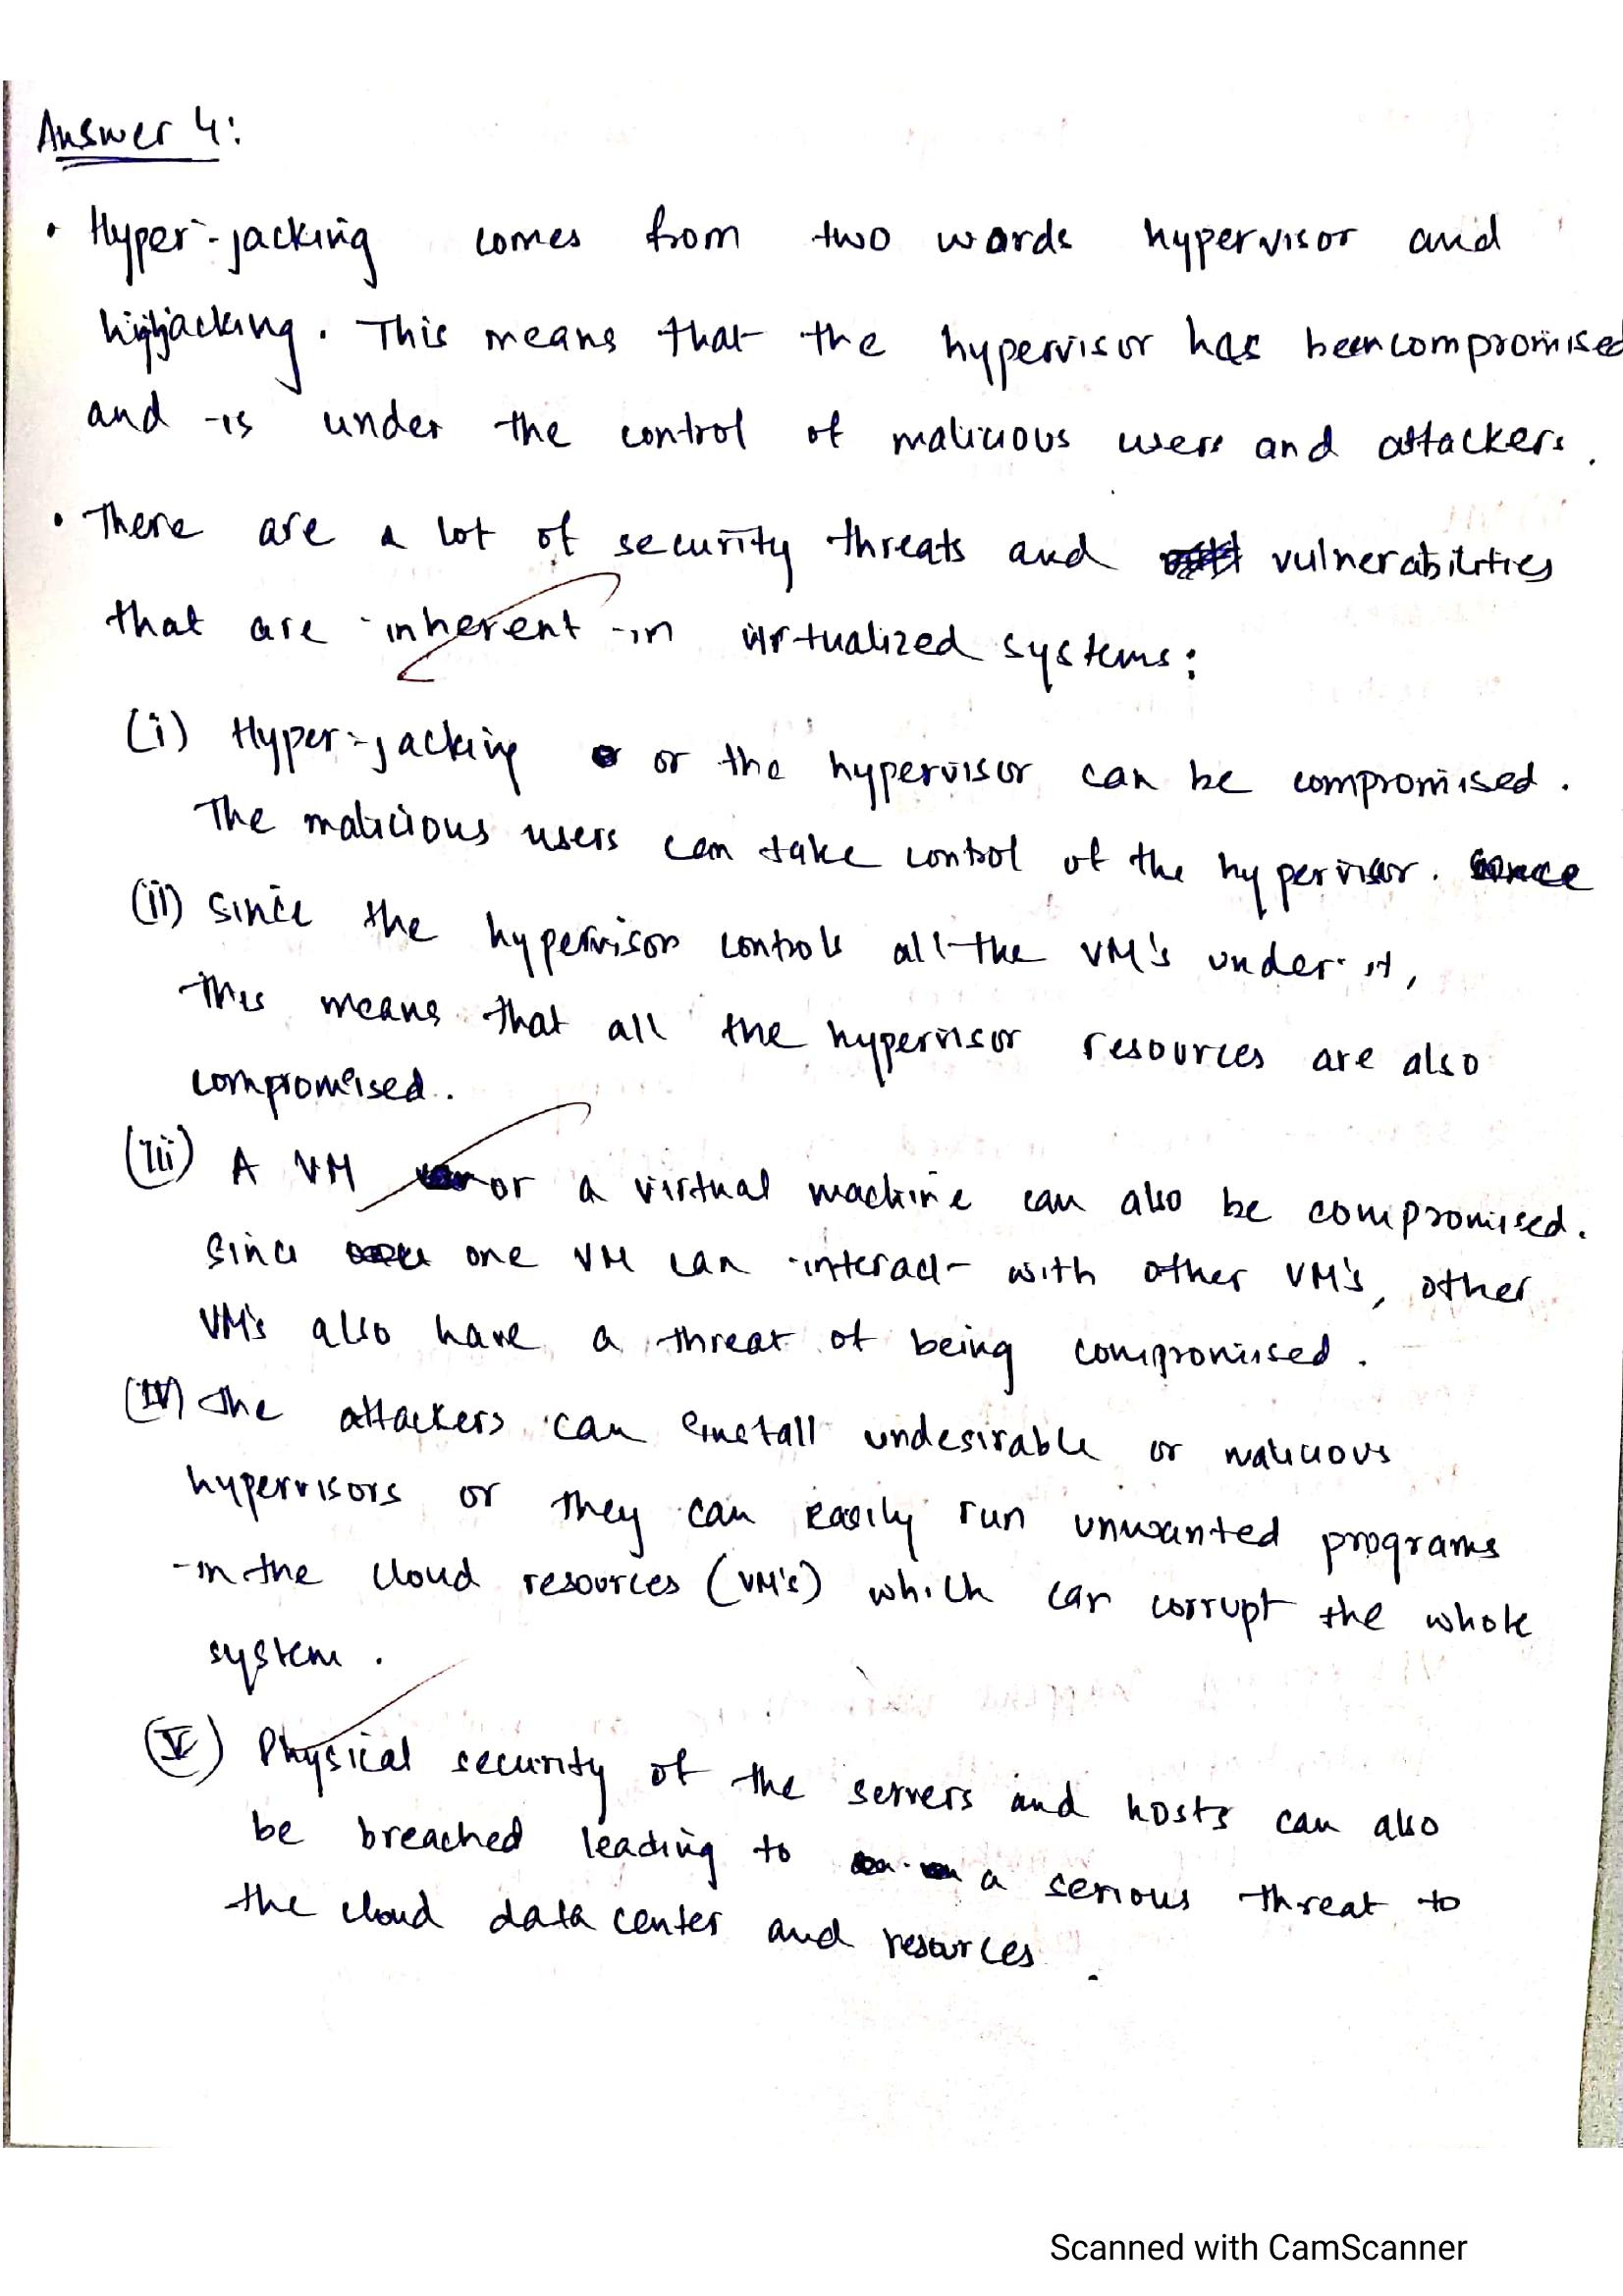 Answer 4:
• Hyper-jacking comes from two words hypervisor and
highjacking. This means that the hypervisor has been compromised
and is under the control of malicious users and attackers.
• There are a lot of security threats and vulnerabilities
that are inherent in virtualized systems:
(i) Hyper-jacking or the hypervisor can be compromised.
The malicious users can take control of the hypervisor.
(ii) Since the hypervisor controls all the VM's under it,
this means that all the hypervisor resources are also
compromised.
(iii) A VM or a virtual machine can also be compromised.
Since one VM can interact with other VM's, other
VM's also have a threat of being compromised.
(iv) The attackers can install undesirable or malicious
hypervisors or they can easily run unwanted programs
in the cloud resources (VM's) which can corrupt the whole
system.
(v) Physical security of the servers and hosts can also
be breached leading to a serious threat to
the cloud data center and resources.
Scanned with CamScanner